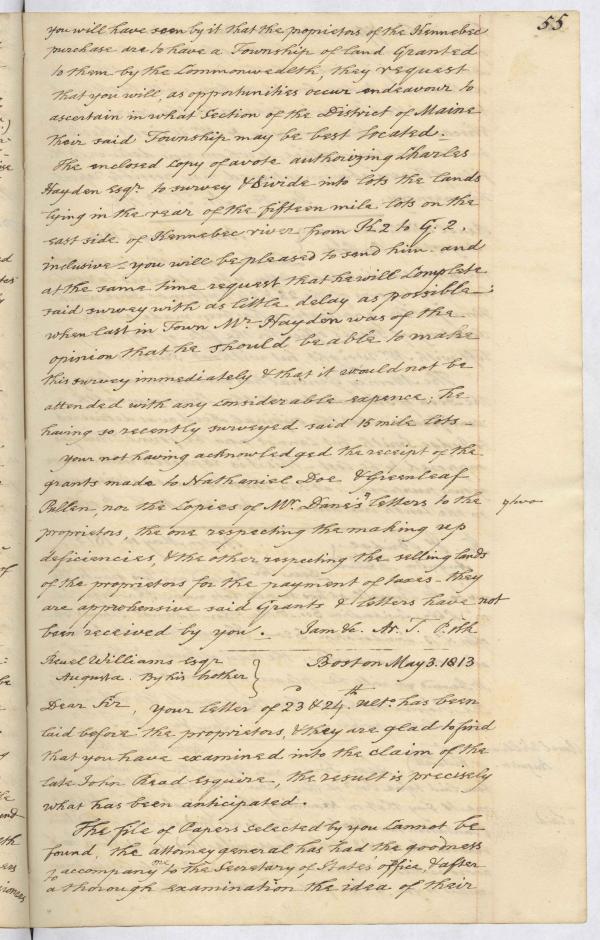 55
you will have seen by it that the proprietors of the Kennebec
purchase are to have a Township of land Granted
to them by the Commonwealth, they request
that you will, as opportunities occur endeavour to
ascertain in what Section of the District of Maine
their said Township may be best located.
The enclosed copy of a vote authorizing Charles
Hayden Esqr. to survey & divide into lots the lands
lying in the rear of the fifteen mile lots on the
east side of Kennebec river from K2 to G. 2.
inclusive - you will be pleased to send him and
at the same time request that he will Complete
said survey with as little delay as possible -
when last in Town Mr. Hayden was of the
opinion that he should be able to make
this survey immediately & that it would not be
attended with any considerable expence; he
having so recently surveyed said 15 mile lots -
Your not having acknowledged the receipt of the
grants made to Nathaniel Doe & Greenleaf
Pullen, nor the Copies of Mr. Dane's letters to the
two
proprietors, the one respecting the making up
deficiencies, & the other respecting the selling lands
of the proprietors for the payment of taxes - they
are apprehensive said Grants & letters have not
been received by you. I am &c. Ar. T. P.Ck
Reuel Williams Esqr Boston May 3. 1813
Augusta. By his brother
Dear Sir, your letter of 23 & 24th. ulto. has been
laid before the proprietors, & they are glad to find
that you have examined into the claim of the
late John Read Esquire, the result is precisely
what has been anticipated.
The file of Papers selected by you cannot be
found, the attorney general has had the goodness
to accompany me to the Secretary of State's office, & after
a thorough examination the idea of their